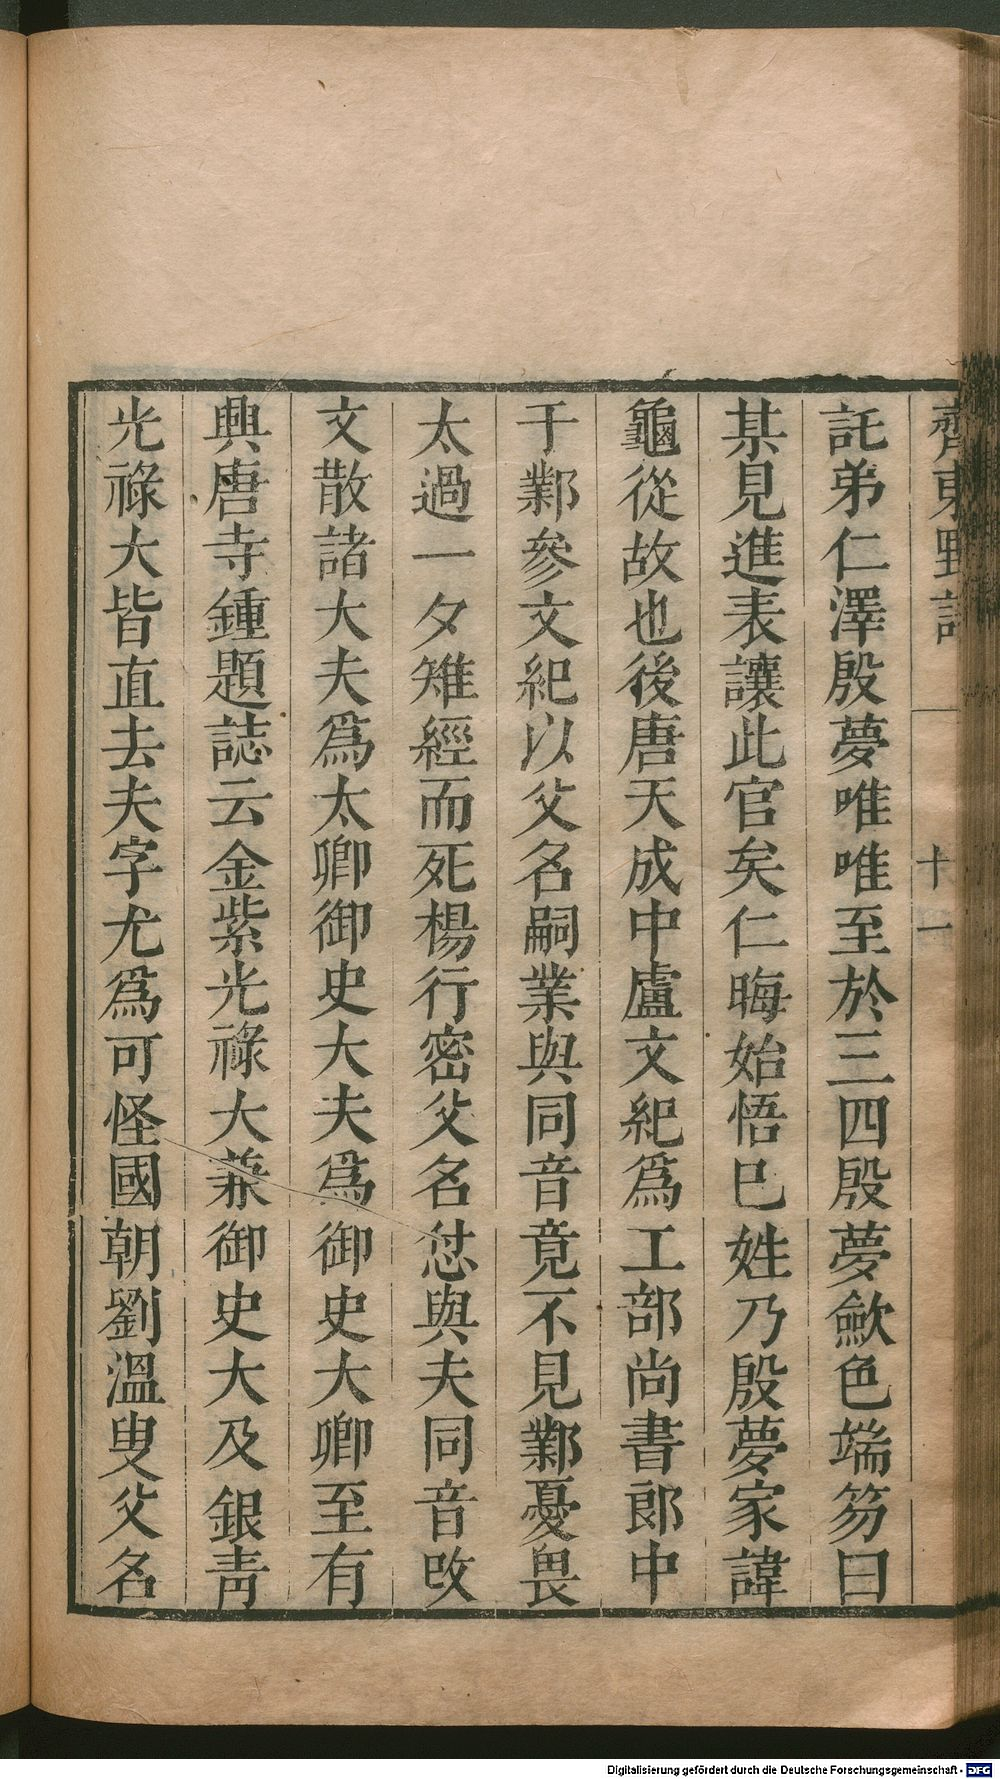 齊東野語
十一
託弟仁澤殷夢唯唯至於三四殷夢歛色端笏曰
某見進表讓此官矣仁晦始悟巳姓乃殷夢家諱
龜從故也後唐天成中盧文紀爲工部尚書郎中
于鄴參文紀以父名嗣業與同音竟不見鄴憂畏
太過一夕雉經而死楊行密父名怤與夫同音改
文散諸大夫爲太卿御史大夫爲御史大卿至有
興唐寺鍾題誌云金紫光祿大兼御史大及銀青
光祿大皆直去夫字尤爲可怪國朝劉溫叟父名
Digitalisierung gefördert durch die Deutsche Forschungsgemeinschaft - DFG